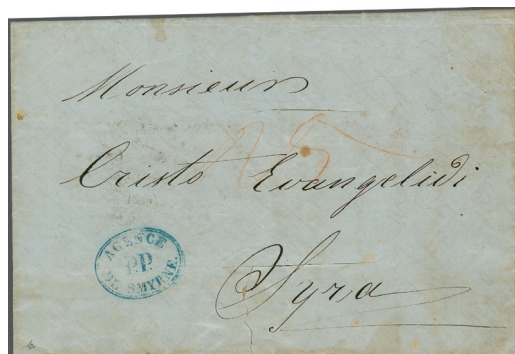 Monsieur
Cristo Evangelidi
Syra
AGENCE
P.P.
DE SMYRNE.